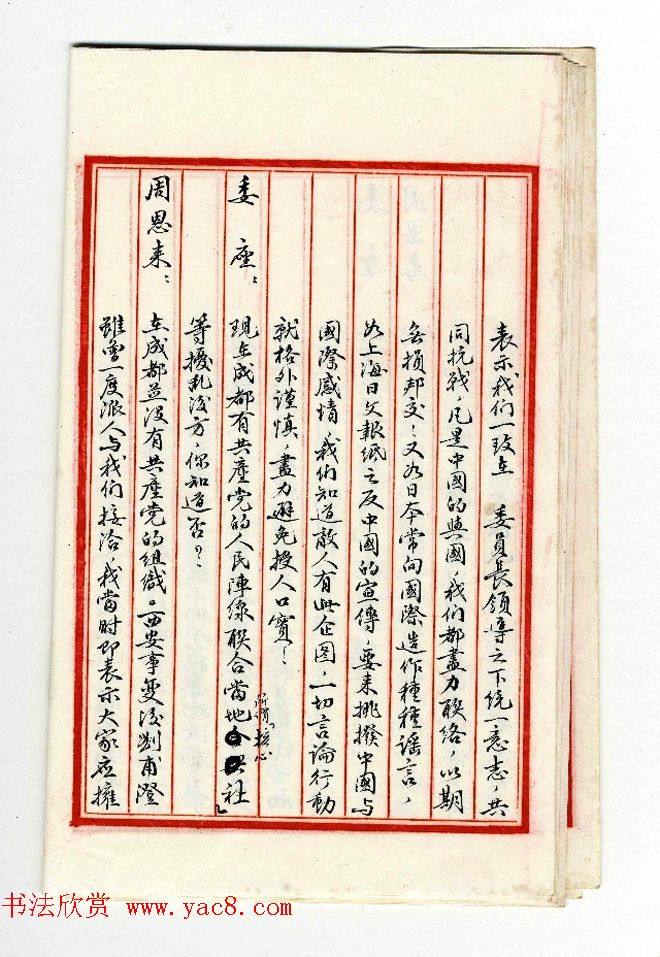 表示我们一致在　委員長領導之下统一意志，共
同抗战，凡是中國的與國，我们都盡力聯絡，以期
無損邦交！又如日本常向國際造作種種謡言，
如上海日文報紙之反中國的宣傳，要来挑撥中國与
國際感情，我们知道敵人有此企图，一切言論行動
就格外谨慎，盡力避免授人口實！」
委座：现在成都有共產党的人民陣線联合當地所謂「核心社」
等擾乱後方，你知道否？
周恩来：在成都並没有共產党的组織。西安事变後刘甫澄
雖曾一度派人与我们接洽，我當时即表示大家应擁
书法欣赏 www.yac8.com